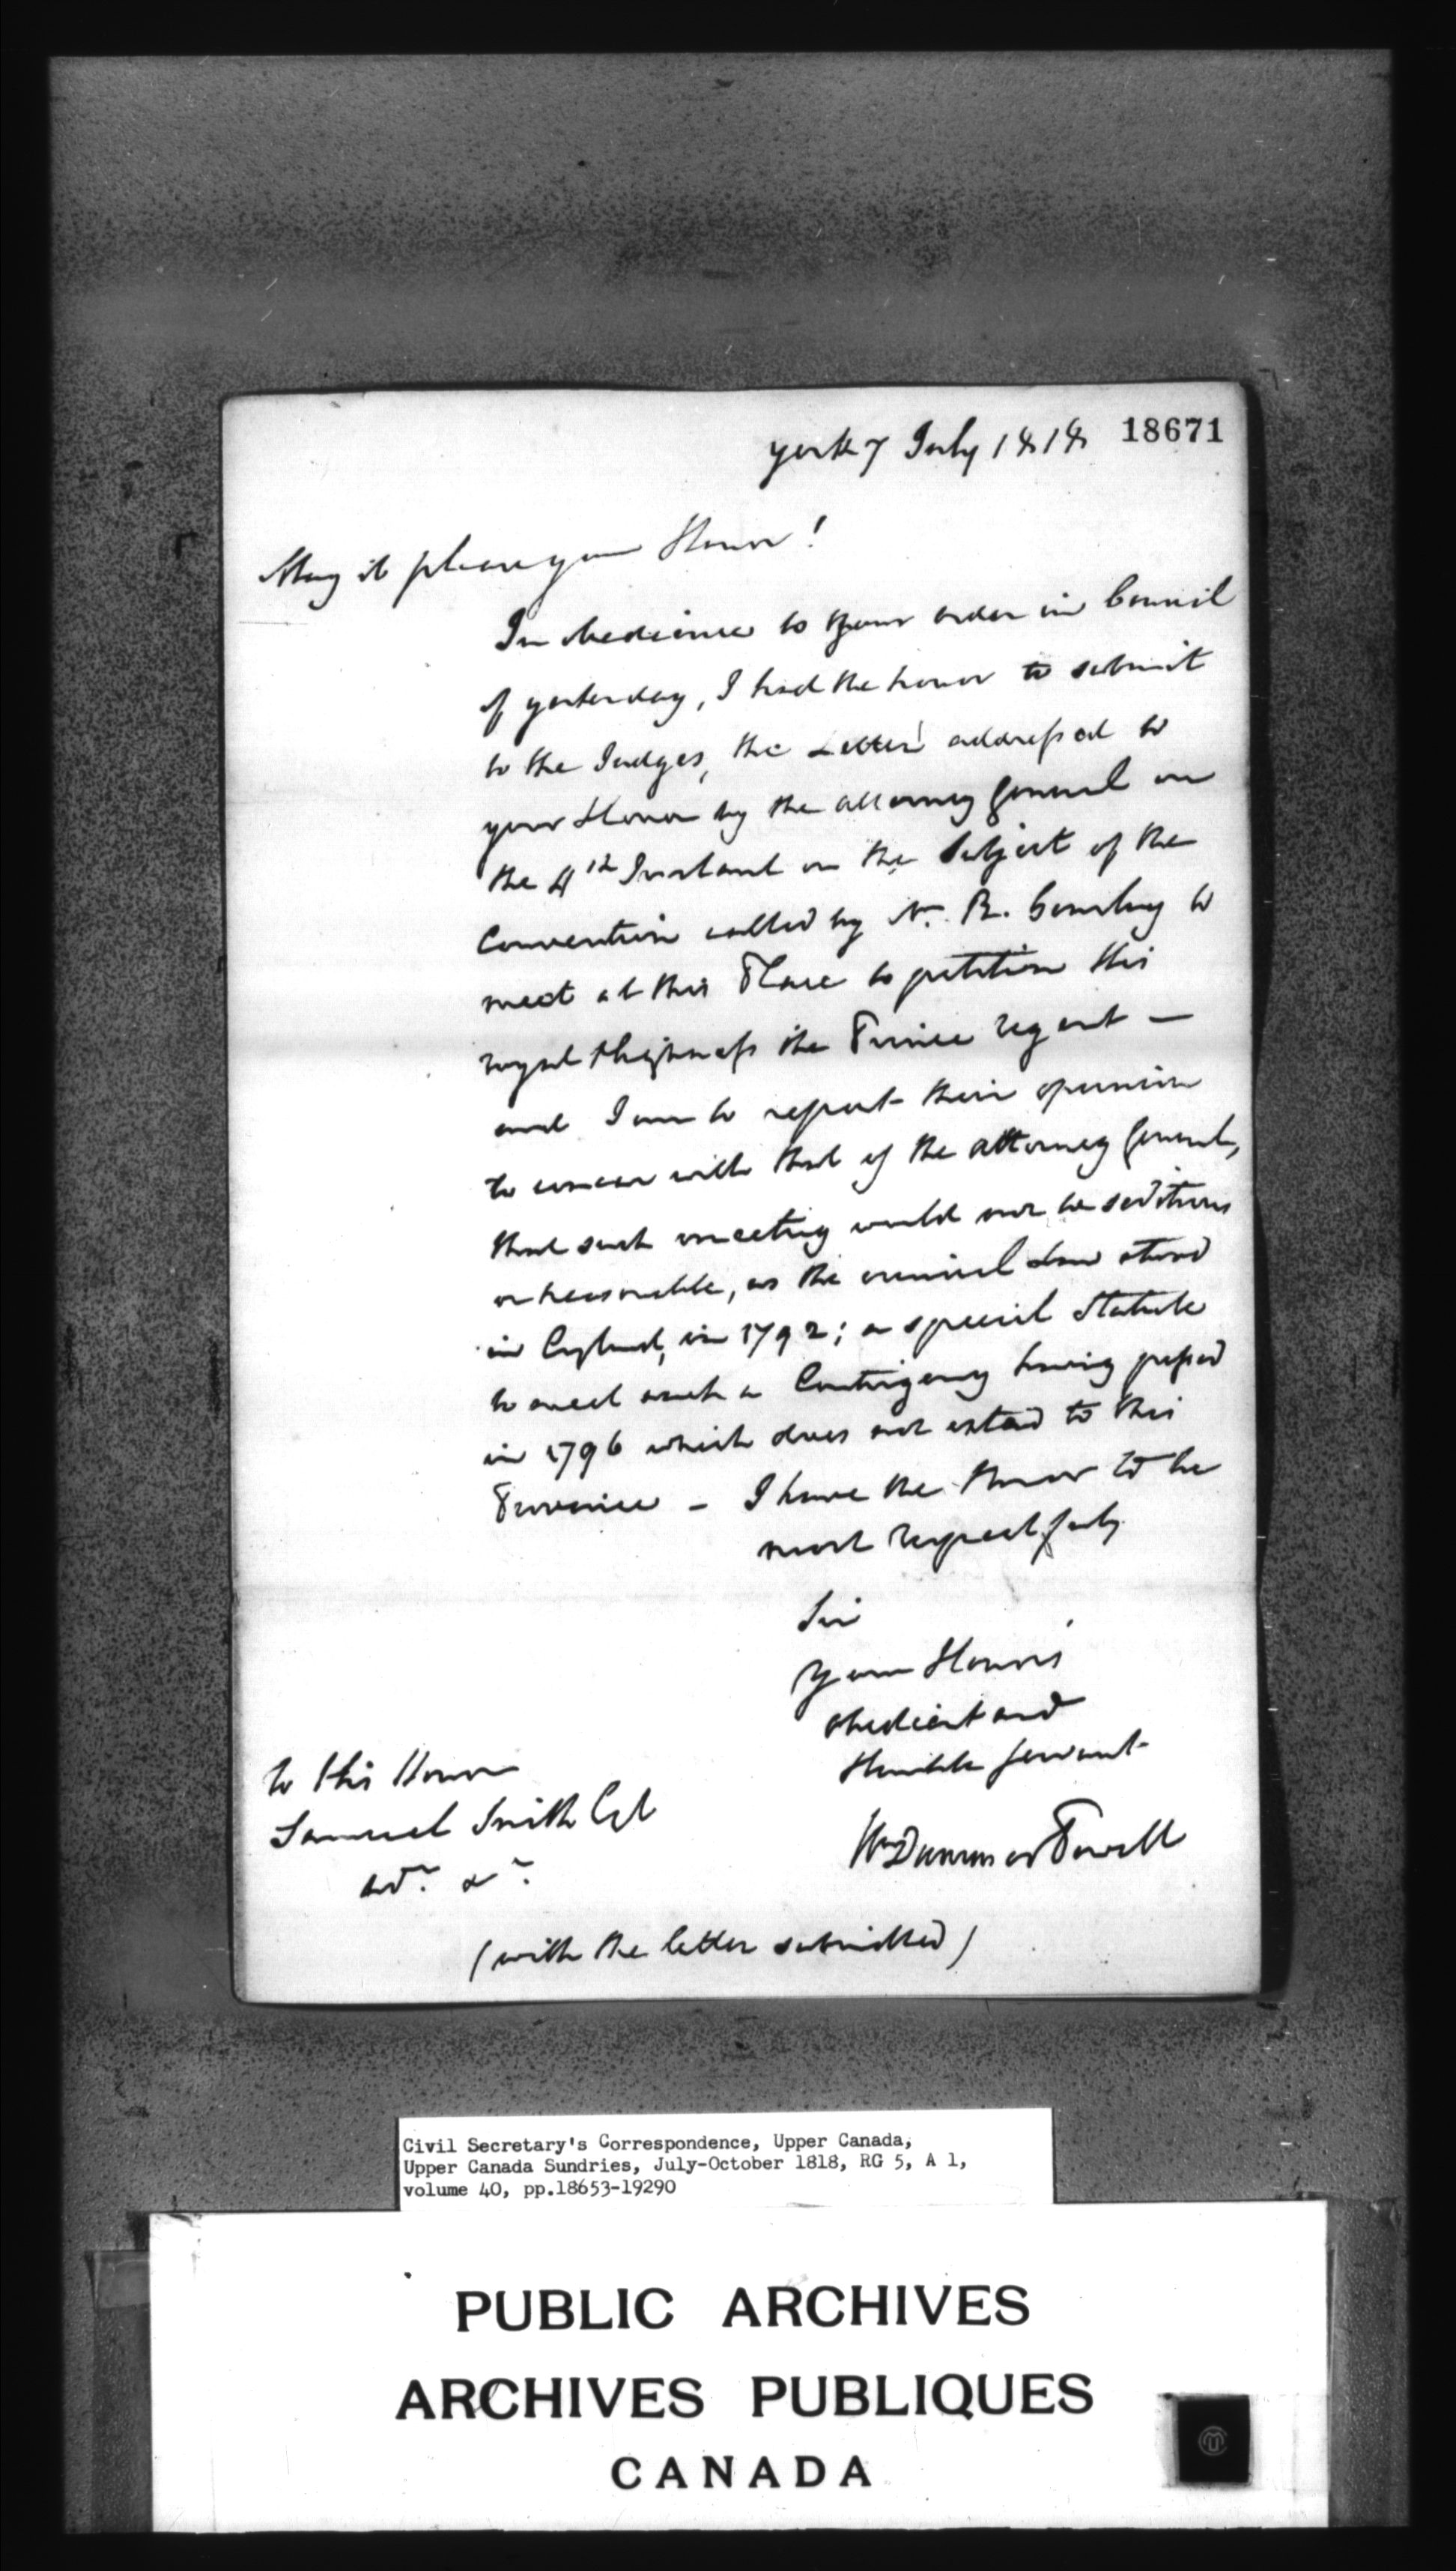 york 7 July 1818 18671
May it please your Honor!
In obedience to your order in Council
of yesterday, I had the honor to submit
to the Judges, the Letter addressed to
your Honor by the attorney General on
the 4th Instant on the Subject of the
Convention called by R. Gourlay to
meet at this Place to petition His
royal Highness the Prince regent —
and I am to report their opinion
to concur with that of the attorney General,
that such meeting would not be seditious
or treasonable, as the criminal Law stood
in England, in 1792; a special Statute
to meet such a Contingency having passed
in 1796 which does not extend to this
Province — I have the Honor to be
most respectfully
Sir
your Honor's
obedient and
Humble servant
Wm Dummer Powell
to His Honor
Samuel Smith
(with the letter submitted)
Civil Secretary's Correspondence, Upper Canada,
Upper Canada Sundries, July-October 1818, RG 5, A 1,
volume 40, pp.18653-19290
PUBLIC ARCHIVES
ARCHIVES PUBLIQUES
CANADA